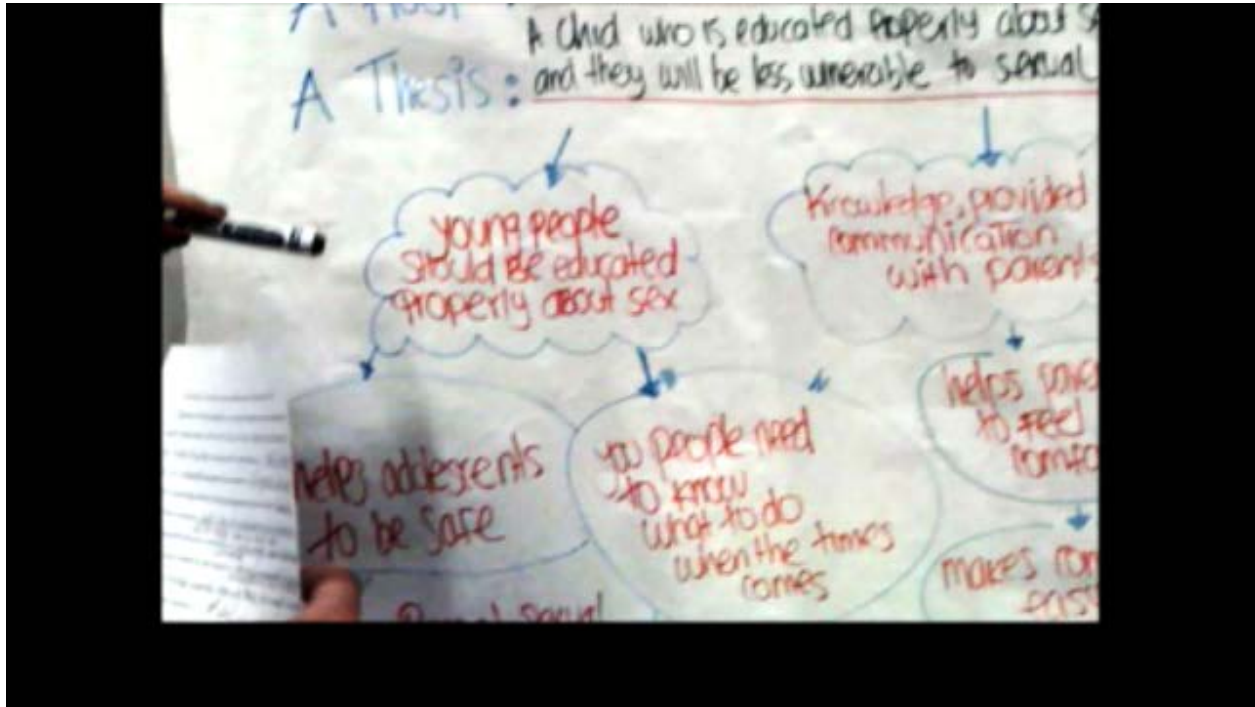 A Hook :
A Child who is educated properly about
A Thesis : and they will be less vunerable to sexual
young people
should be educated
properly about sex
Knowledge, provided
communication
with parents
helps adolescents
to be safe
you people need
to know
what to do
when the times
comes
helps
to feel
makes
sexual